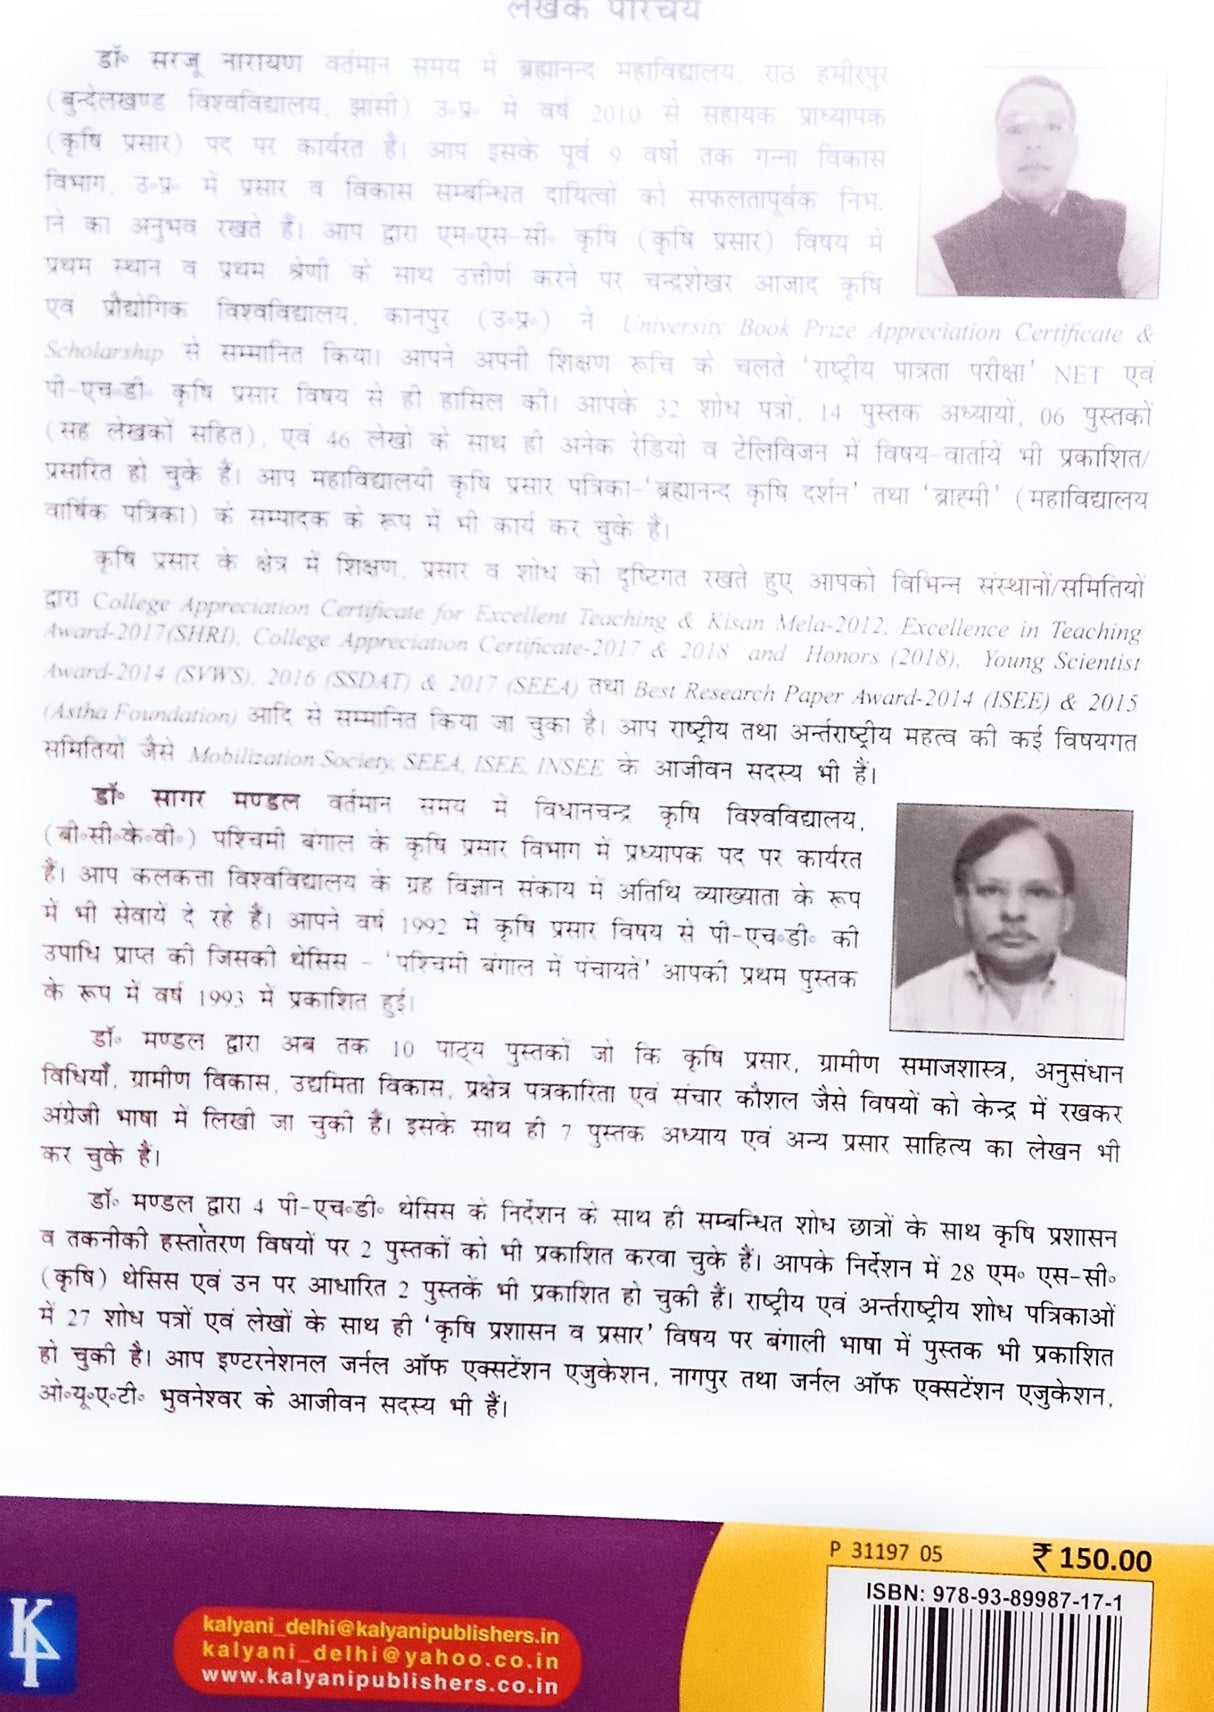 लेखक परिचय
डॉ॰ सरजू नारायण वर्तमान समय में ब्रह्मानन्द महाविद्यालय, राठ हमीरपुर
(बुन्देलखण्ड विश्वविद्यालय, झांसी) उ॰प्र॰ में वर्ष 2010 से सहायक प्राध्यापक
(कृषि प्रसार) पद पर कार्यरत हैं। आप इसके पूर्व 9 वर्षो तक गन्ना विकास
विभाग, उ॰प्र॰ में प्रसार व विकास सम्बन्धित दायित्वों को सफलतापूर्वक निभ.
ाने का अनुभव रखते हैं। आप द्वारा एम॰एस-सी॰ कृषि (कृषि प्रसार) विषय में
प्रथम स्थान व प्रथम श्रेणी के साथ उत्तीर्ण करने पर चन्द्रशेखर आजाद कृषि
एवं प्रौद्योगिक विश्वविद्यालय, कानपुर (उ॰प्र॰) ने University Book Prize Appreciation Certificate &
Scholarship से सम्मानित किया। आपने अपनी शिक्षण रूचि के चलते 'राष्ट्रीय पात्रता परीक्षा' NET एवं
पी-एच॰डी॰ कृषि प्रसार विषय से ही हासिल की। आपके 32 शोध पत्रों, 14 पुस्तक अध्यायों, 06 पुस्तकों
(सह लेखकों सहित), एवं 46 लेखों के साथ ही अनेक रेडियो व टेलिविजन में विषय-वार्तायें भी प्रकाशित/
प्रसारित हो चुके हैं। आप महाविद्यालयी कृषि प्रसार पत्रिका-'ब्रह्मानन्द कृषि दर्शन' तथा 'ब्राह्मी' (महाविद्यालय
वार्षिक पत्रिका) के सम्पादक के रूप में भी कार्य कर चुके हैं।
कृषि प्रसार के क्षेत्र में शिक्षण, प्रसार व शोध को दृष्टिगत रखते हुए आपको विभिन्न संस्थानों/समितियों
द्वारा College Appreciation Certificate for Excellent Teaching & Kisan Mela-2012, Excellence in Teaching
Award-2017(SHRI), College Appreciation Certificate-2017 & 2018 and Honors (2018), Young Scientist
Award-2014 (SVWS), 2016 (SSDAT) & 2017 (SEEA) तथा Best Research Paper Award-2014 (ISEE) & 2015
(Astha Foundation) आदि से सम्मानित किया जा चुका है। आप राष्ट्रीय तथा अर्न्तराष्ट्रीय महत्व की कई विषयगत
समितियों जैसे Mobilization Society, SEEA, ISEE, INSEE के आजीवन सदस्य भी हैं।
डॉ॰ सागर मण्डल वर्तमान समय में विधानचन्द्र कृषि विश्वविद्यालय,
(बी॰सी॰के॰वी॰) पश्चिमी बंगाल के कृषि प्रसार विभाग में प्रध्यापक पद पर कार्यरत
हैं। आप कलकत्ता विश्वविद्यालय के ग्रह विज्ञान संकाय में अतिथि व्याख्याता के रूप
में भी सेवायें दे रहे हैं। आपने वर्ष 1992 में कृषि प्रसार विषय से पी-एच॰डी॰ की
उपाधि प्राप्त की जिसकी थेसिस - 'पश्चिमी बंगाल में पंचायतें' आपकी प्रथम पुस्तक
के रूप में वर्ष 1993 में प्रकाशित हुई।
डॉ॰ मण्डल द्वारा अब तक 10 पाठ्य पुस्तकों जो कि कृषि प्रसार, ग्रामीण समाजशास्त्र, अनुसंधान
विधियाँ, ग्रामीण विकास, उद्यमिता विकास, प्रक्षेत्र पत्रकारिता एवं संचार कौशल जैसे विषयों को केन्द्र में रखकर
अंग्रेजी भाषा में लिखी जा चुकी हैं। इसके साथ ही 7 पुस्तक अध्याय एवं अन्य प्रसार साहित्य का लेखन भी
कर चुके हैं।
डॉ॰ मण्डल द्वारा 4 पी-एच॰डी॰ थेसिस के निर्देशन के साथ ही सम्बन्धित शोध छात्रों के साथ कृषि प्रशासन
व तकनीकी हस्तांतरण विषयों पर 2 पुस्तकों को भी प्रकाशित करवा चुके हैं। आपके निर्देशन में 28 एम॰ एस-सी॰
(कृषि) थेसिस एवं उन पर आधारित 2 पुस्तकें भी प्रकाशित हो चुकी हैं। राष्ट्रीय एवं अर्न्तराष्ट्रीय शोध पत्रिकाओं
में 27 शोध पत्रों एवं लेखों के साथ ही 'कृषि प्रशासन व प्रसार' विषय पर बंगाली भाषा में पुस्तक भी प्रकाशित
हो चुकी है। आप इण्टरनेशनल जर्नल ऑफ एक्सटेंशन एजुकेशन, नागपुर तथा जर्नल ऑफ एक्सटेंशन एजुकेशन,
ओ॰यू॰ए॰टी॰ भुवनेश्वर के आजीवन सदस्य भी हैं।
P 31197 05
₹ 150.00
ISBN: 978-93-89987-17-1
KP
kalyani_delhi@kalyanipublishers.in
kalyani_delhi@yahoo.co.in
www.kalyanipublishers.co.in